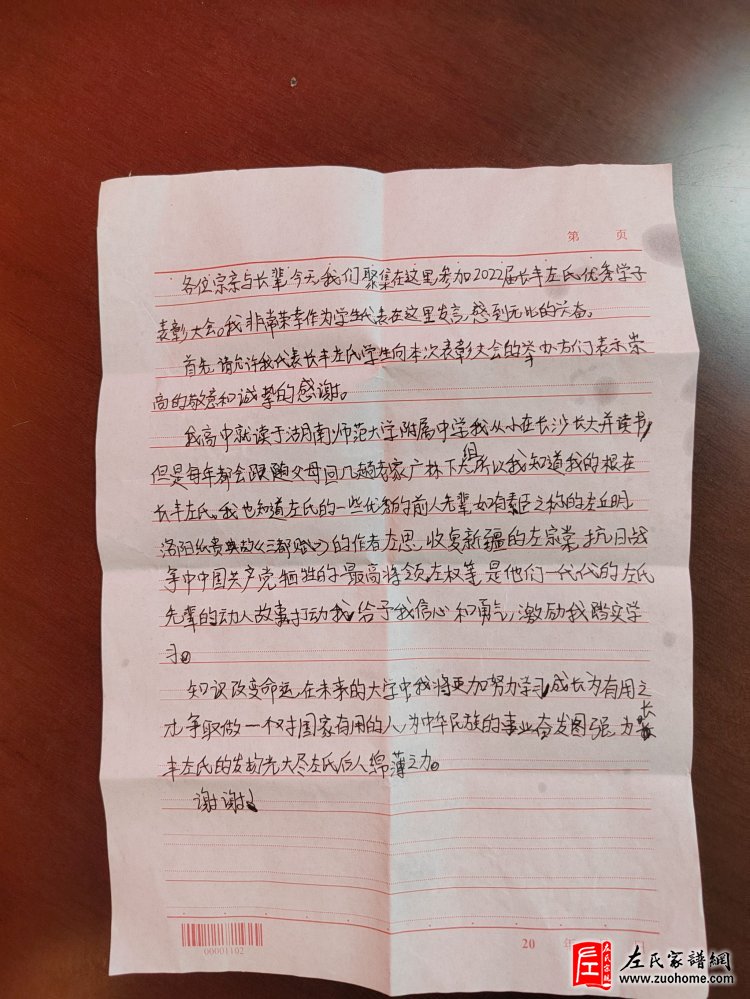 第 页
各位宗亲与长辈,今天我们聚集在这里参加2022届长丰左氏优秀学子
表彰大会。我非常荣幸作为学生代表在这里发言,感到无比的兴奋。
首先,请允许我代表长丰左氏学生向本次表彰大会的举办方们表示崇
高的敬意和诚挚的感谢。
我高中就读于湖南师范大学附属中学,我从小在长沙长大并读书,
但是每年都会跟随父母回几趟老家广林下大组,所以我知道我的根在
长丰左氏。我也知道左氏的一些优秀的前人先辈,如有素臣之称的左丘明,
洛阳纸贵典故《三都赋》的作者左思,收复新疆的左宗棠,抗日战
争中中国共产党牺牲的最高将领左权等,是他们一代代的左氏
先辈的动人故事打动我,给予我信心和勇气,激励我踏实学
习。
知识改变命运,在未来的大学中,我将更加努力学习,成长为有用之
才,争取做一个对国家有用的人,为中华民族的事业奋发图强,为长
丰左氏的发扬光大尽左氏后人绵薄之力。
谢谢!
00001102
20 年
左氏宗亲
左氏家譜網
www.zuohome.com